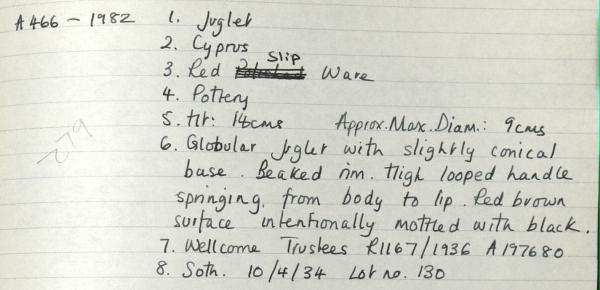 A466 - 1982 1. Juglet
2. Cyprus
3. Red Slip Ware
4. Pottery
5. Ht: 14cms Approx. Max. Diam.: 9cms
6. Globular Juglet with slightly conical
base. Beaked rim. High looped handle
springing from body to lip. Red brown
surface intentionally mottled with black.
7. Wellcome Trustees R1167/1936 A197680
8. Soth. 10/4/34 Lot no. 130
279